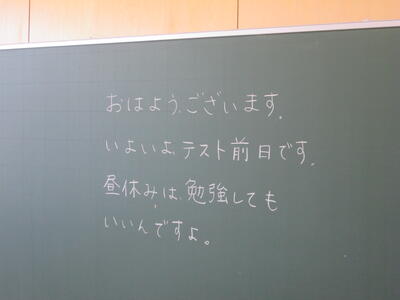 おはようございます。
いよいよ、テスト前日です。
昼休みは、勉強しても
いいんですよ。